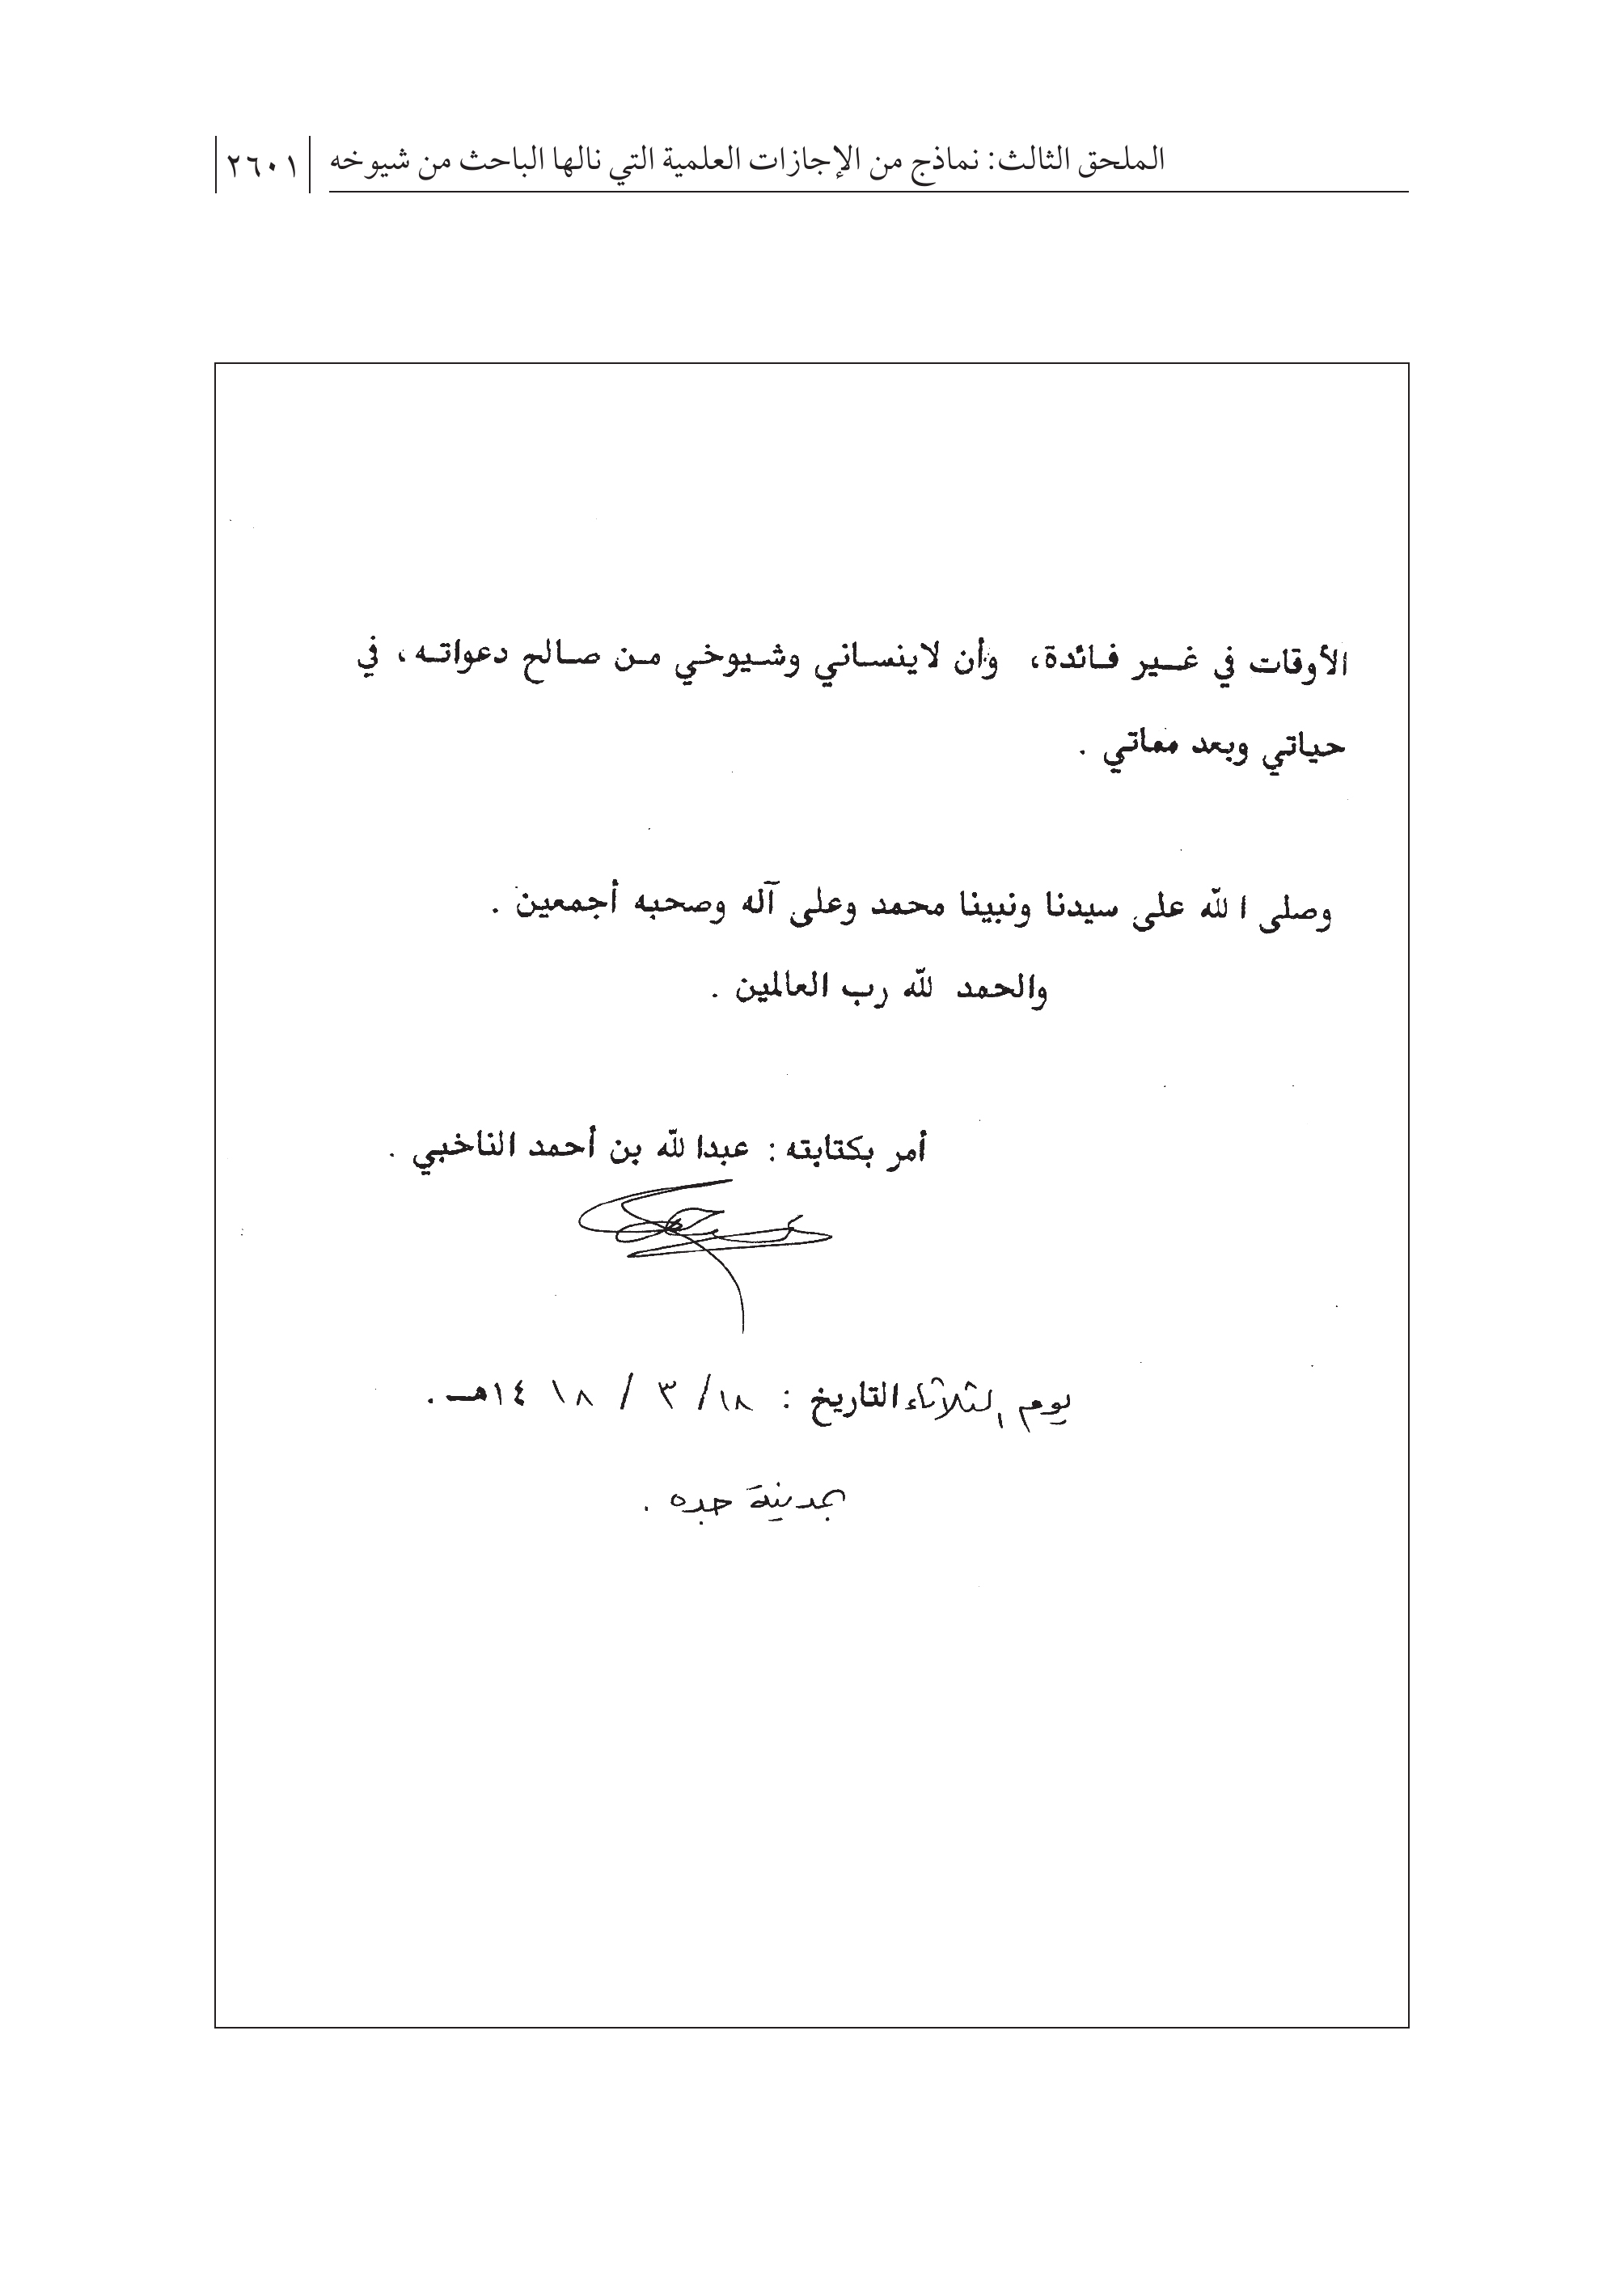 الملحق الثالث: نماذج من الإجازات العلمية التي نالها الباحث من شيوخه ٢٦٠١
الأوقات في غير فائدة، وأن لاينساني وشيوخي من صالح دعواته، في
حياتي وبعد مماتي .
وصلى الله على سيدنا ونبينا محمد وعلى آله وصحبه أجمعين .
والحمد لله رب العالمين .
أمر بكتابته : عبدالله بن أحمد الناخبي .
يوم الثلاثاء التاريخ : ١٨/ ٣ / ١٤١٨هـ .
بمدينة جده .